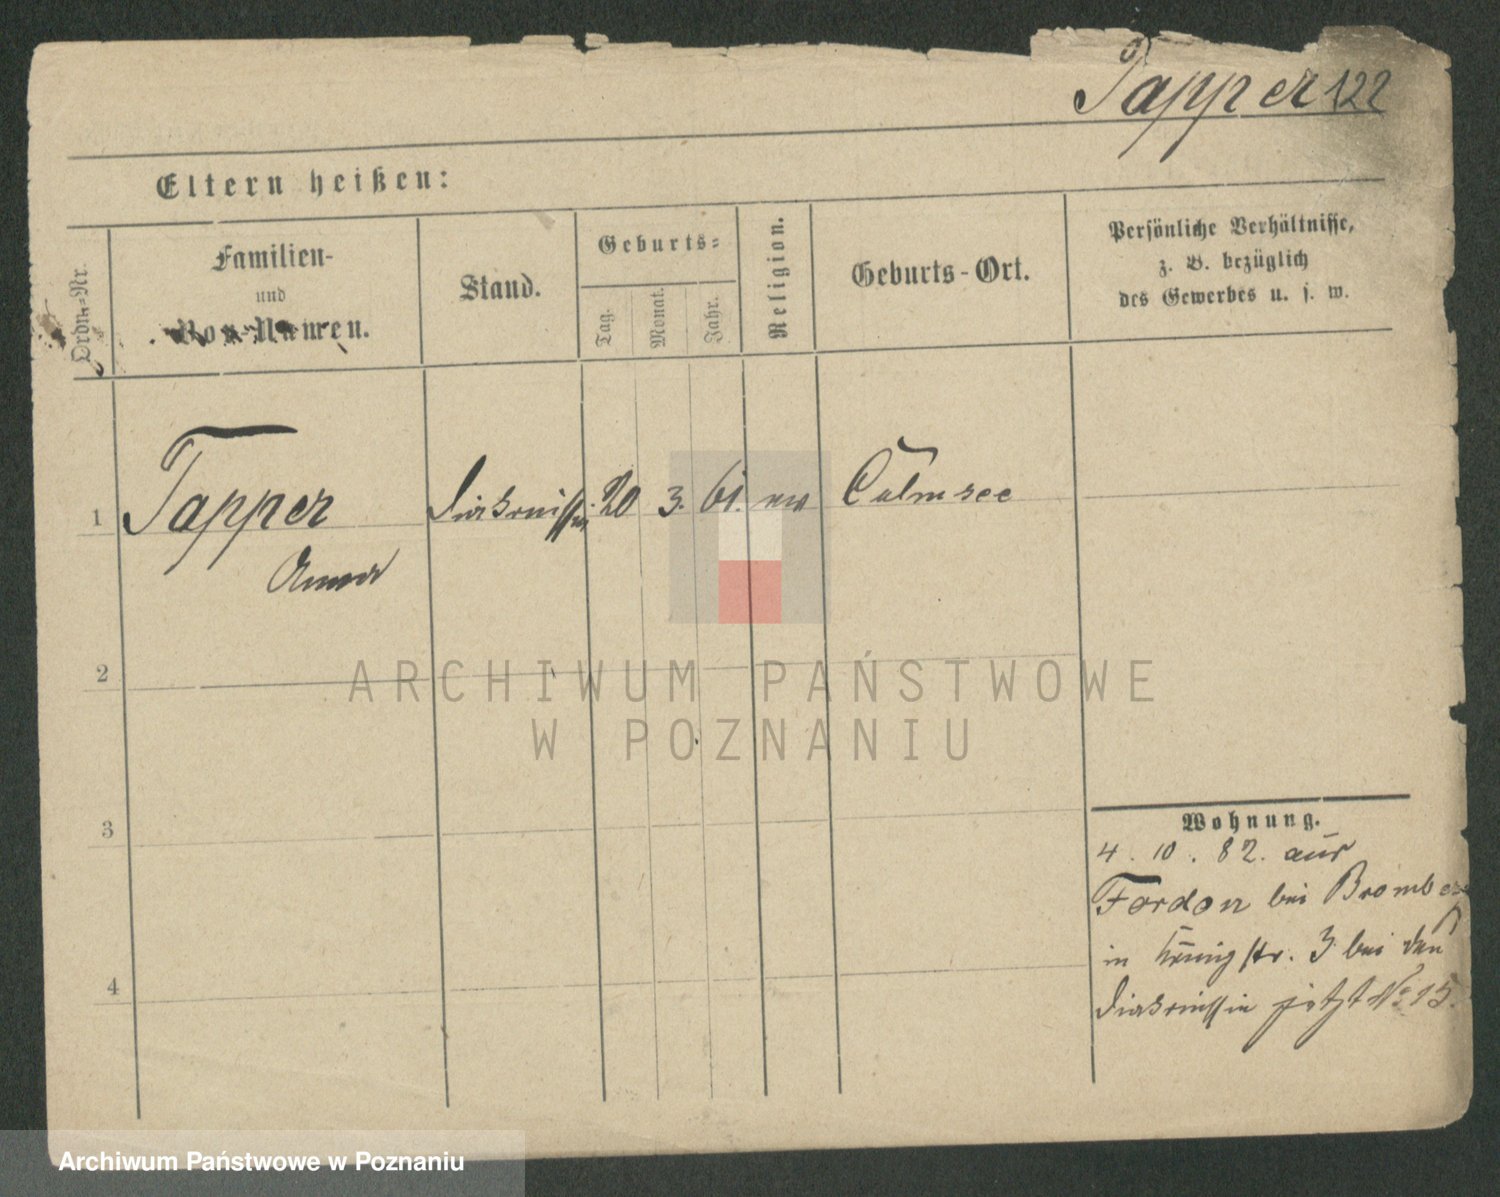 Tapper 122
Eltern heißen:
Ordn.-Nr.
Familien-
und
Vor-Namen.
Stand.
Geburts-
Tag.
Monat.
Jahr.
Religion.
Geburts-Ort.
Persönliche Verhältnisse,
z. B. bezüglich
des Gewerbes u. s. w.
1 Tapper Diakonissin 20 3. 61. ev Culmsee
Anna
2
ARCHIWUM PAŃSTWOWE
W POZNANIU
3
Wohnung.
4. 10. 82. aus
Fordon bei Bromberg
in Königstr. 3 bei den
Diakonissin jetzt No 15.
4
Archiwum Państwowe w Poznaniu